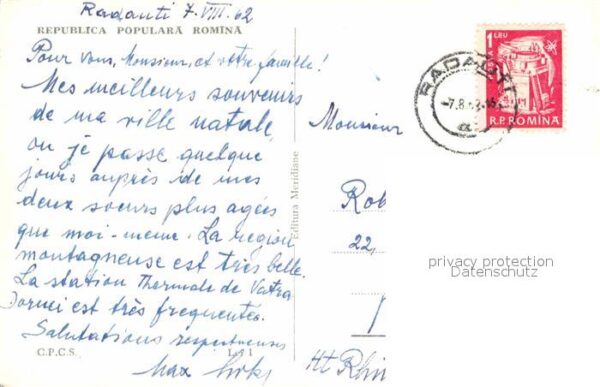 Radauti 7.VIII.62
REPUBLICA POPULARĂ ROMÎNĂ
Pour vous, Monsieur, et votre famille!
Mes meilleurs souvenirs
de ma ville natale,
ou je passe quelque
jours auprès de mes
deux soeurs plus agées
que moi-meme. La region
montagneuse est très belle.
La station Thermale de Vatra
Dornei est très frequentée.
Salutations respectueuses
Max
C.P.C.S. L. 1
Editura Meridiane
1 LEU
R.P.ROMÎNĂ
RADAUTI
-7.8.62
a
Monsieur
Rob
22,
Ht Rhin
privacy protection
Datenschutz